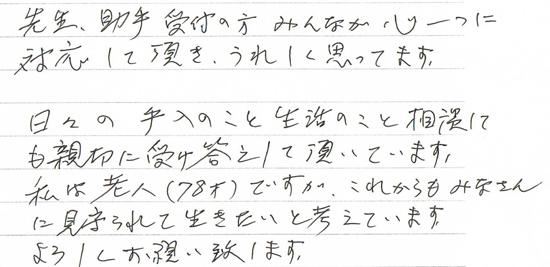 先生、助手 受付の方 みんなが心一つに
対応して頂き、うれしく思ってます。
日々の手入のこと生活のこと相談に
も親切に受け答えして頂いています。
私は老人(78才)ですが、これからもみなさん
に見守られて生きたいと考えています。
よろしくお願い致します。